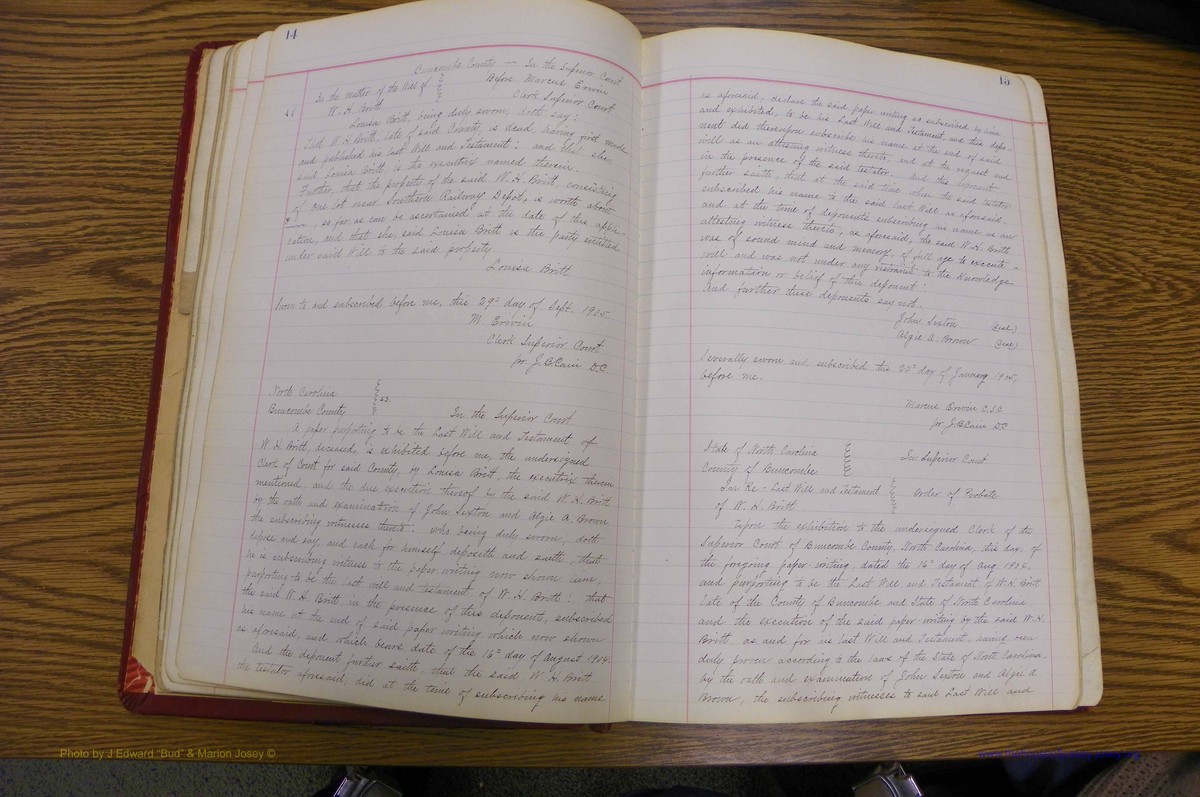 14
Buncombe County — In the Superior Court
In the matter of the Will of
W. H. Britt
Before Marcus Erwin
Clerk Superior Court
Louisa Britt, being duly sworn, doth say:
That W. H. Britt, late of said County, is dead, having first made
and published his last Will and Testament: and that she
said Louisa Britt, is the executrix named therein.
Further, that the property of the said W. H. Britt, consisting
of one lot near Southern Railway Depot, is worth about
$ , so far as can be ascertained at the date of this appli-
cation, and that she, said Louisa Britt is the party entitled
under said Will to the said property.
Louisa Britt
Sworn to and subscribed before me, this 29" day of Sept. 1905.
M. Erwin
Clerk Superior Court
Pr J. B Cain D.C.
North Carolina
Buncombe County
ss.
In the Superior Court
A paper purporting to be the Last Will and Testament of
W. H. Britt, deceased, is exhibited before me, the undersigned
Clerk of Court for said County, by Louisa Britt, the executrix therein
mentioned, and the due execution thereof by the said W. H. Britt
by the oath and examination of John Sexton and Algie A. Brown
the subscribing witnesses thereto: who being duly sworn, doth
depose and say, and each for himself deposeth and saith, that
he is subscribing witness to the paper writing now shown him,
purporting to be the last will and testament of W. H. Britt: that
the said W. H. Britt, in the presence of this deponent, subscribed
his name at the end of said paper writing which now shown
as aforesaid, and which bears date of the 16" day of August 1904.
And the deponent further saith, that the said W. H. Britt
the testator aforesaid, did at the time of subscribing his name
15
as aforesaid, declare the said paper writing so subscribed by him
and exhibited, to be his Last Will and Testament, and this depo-
nent did thereupon subscribe his name at the end of said
will as an attesting witness thereto, and at the request and
in the presence of the said testator. And this deponent
further saith, that at the said time when the said testator
subscribed his name to the said last Will as aforesaid,
and at the time of deponents subscribing his name as an
attesting witness thereto, as aforesaid, the said W. H. Britt
was of sound mind and memory, of full age to execute a
will and was not under any restraint to the knowledge
information or belief of this deponent:
And further these deponents say not.
John Sexton (seal)
Algie A. Brown (seal)
Severally sworn and subscribed this day of January 1905,
before me.
Marcus Erwin C.S.C.
Pr J. B Cain D.C
State of North Carolina
County of Buncombe
In Superior Court
In Re - Last Will and Testament
of W. H. Britt
Order of Probate
Upon the exhibition to the undersigned Clerk of the
Superior Court of Buncombe County, North Carolina, this day, of
the foregoing paper-writing, dated the 16" day of Aug. 1904,
and purporting to be the Last Will and Testament of W. H. Britt
late of the County of Buncombe and State of North Carolina
and the execution of the said paper-writing by the said W. H.
Britt, as and for his last Will and Testament, having been
duly proven according to the laws of the State of North Carolina,
by the oath and examination of John Sexton and Algie A.
Brown, the subscribing witnesses to said Last Will and
Photo by J Edward "Bud" & Marion Josey ©